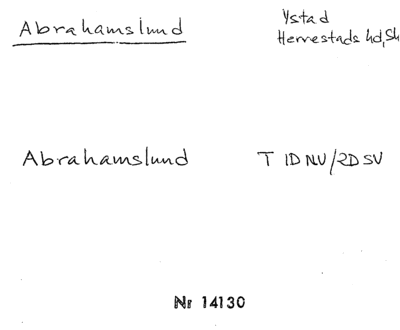 Abrahamslund
Ystad
Herrestads hd, Sk
Abrahamslund
T 1D NV/2D SV
Nr 14130